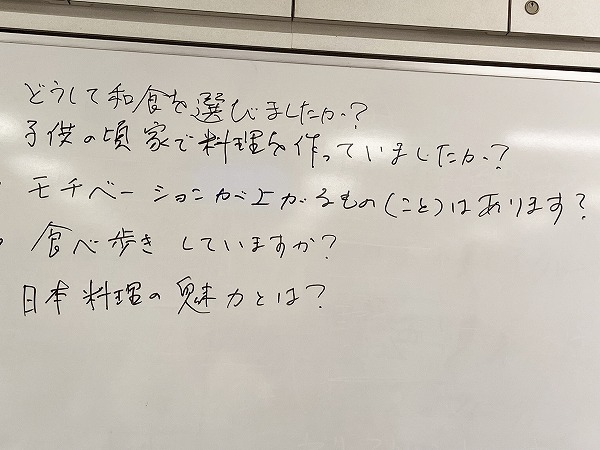 どうして和食を選びましたか?
子供の頃家で料理を作っていましたか?
・モチベーションが上がるもの(こと)はあります?
・食べ歩きしていますか?
日本料理の魅力とは?